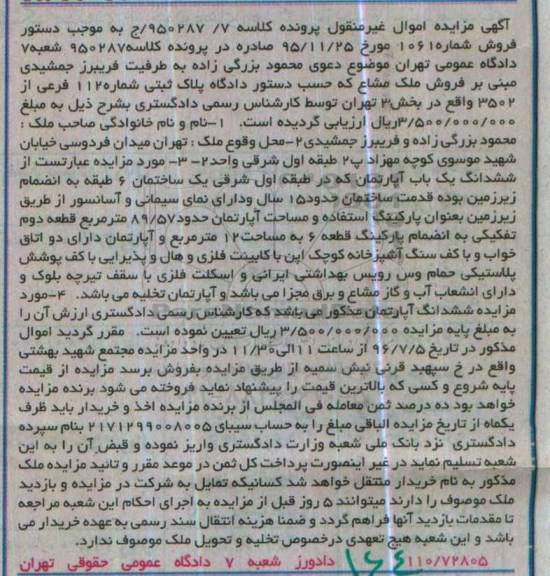 آگهی مزایده اموال غیرمنقول پرونده کلاسه ۷/ ۹۵۰۲۸۷/ج به موجب دستور
فروش شماره۱۰۶۱ مورخ ۹۵/۱۱/۲۵ صادره در پرونده کلاسه۹۵۰۲۸۷ شعبه۷
دادگاه عمومی تهران موضوع دعوی محمود بزرگی زاده به طرفیت فریبرز جمشیدی
مبنی بر فروش ملک مشاع که حسب دستور دادگاه پلاک ثبتی شماره۱۱۲ فرعی از
۳۵۰۲ واقع در بخش۳ تهران توسط کارشناس رسمی دادگستری بشرح ذیل به مبلغ
۳/۵۰۰/۰۰۰/۰۰۰ریال ارزیابی گردیده است. ۱-نام و نام خانوادگی صاحب ملک :
محمود بزرگی زاده و فریبرز جمشیدی۲-محل وقوع ملک : تهران میدان فردوسی خیابان
شهید موسوی کوچه مهزاد پ۲ طبقه اول شرقی واحد۲- ۳- مورد مزایده عبارتست از
ششدانگ یک باب آپارتمان که در طبقه اول شرقی یک ساختمان ۶ طبقه به انضمام
زیرزمین بوده قدمت ساختمان حدود۱۵ سال ودارای نمای سیمانی و آسانسور از طریق
زیرزمین بعنوان پارکینگ استفاده و مساحت آپارتمان حدود۸۹/۵۷ مترمربع قطعه دوم
تفکیکی به انضمام پارکینگ قطعه ۶ به مساحت۱۲ مترمربع و آپارتمان دارای دو اتاق
خواب و با کف سنگ آشپزخانه کوچک اپن با کابینت فلزی و هال و پذیرایی با کف پوشش
پلاستیکی حمام وس رویس بهداشتی ایرانی و اسکلت فلزی با سقف تیرچه بلوک و
دارای انشعاب آب و گاز مشاع و برق مجزا می باشد و آپارتمان تخلیه می باشد. ۴-مورد
مزایده ششدانگ آپارتمان مذکور می باشد که کارشناس رسمی دادگستری ارزش آن را
به مبلغ پایه مزایده ۳/۵۰۰/۰۰۰/۰۰۰ ریال تعیین نموده است. مقرر گردید اموال
مذکور در تاریخ ۹۶/۷/۵ از ساعت ۱۱الی۱۱/۳۰ در واحد مزایده مجتمع شهید بهشتی
واقع در خ سپهبد قرنی نبش سمیه از طریق مزایده بفروش برسد مزایده از قیمت
پایه شروع و کسی که بالاترین قیمت را پیشنهاد نماید فروخته می شود برنده مزایده
خواهد بود ده درصد ثمن معامله فی المجلس از برنده مزایده اخذ و خریدار باید ظرف
یکماه از تاریخ مزایده الباقی مبلغ را به حساب سیبای ۲۱۷۱۲۹۹۰۰۸۰۰۵ بنام سپرده
دادگستری نزد بانک ملی شعبه وزارت دادگستری واریز نموده و قبض آن را به این
شعبه تسلیم نماید در غیر اینصورت پرداخت کل ثمن در موعد مقرر و تائید مزایده ملک
مذکور به نام خریدار منتقل خواهد شد کسانیکه تمایل به شرکت در مزایده و بازدید
ملک موصوف را دارند میتوانند ۵ روز قبل از مزایده به اجرای احکام این شعبه مراجعه
تا مقدمات بازدید آنها فراهم گردد و ضمنا هزینه انتقال سند رسمی به عهده خریدار می
باشد و این شعبه هیچ تعهدی درخصوص تخلیه و تحویل ملک موصوف ندارد.
۱۱۰/۷۲۸۰۵ دادورز شعبه ۷ دادگاه عمومی حقوقی تهران